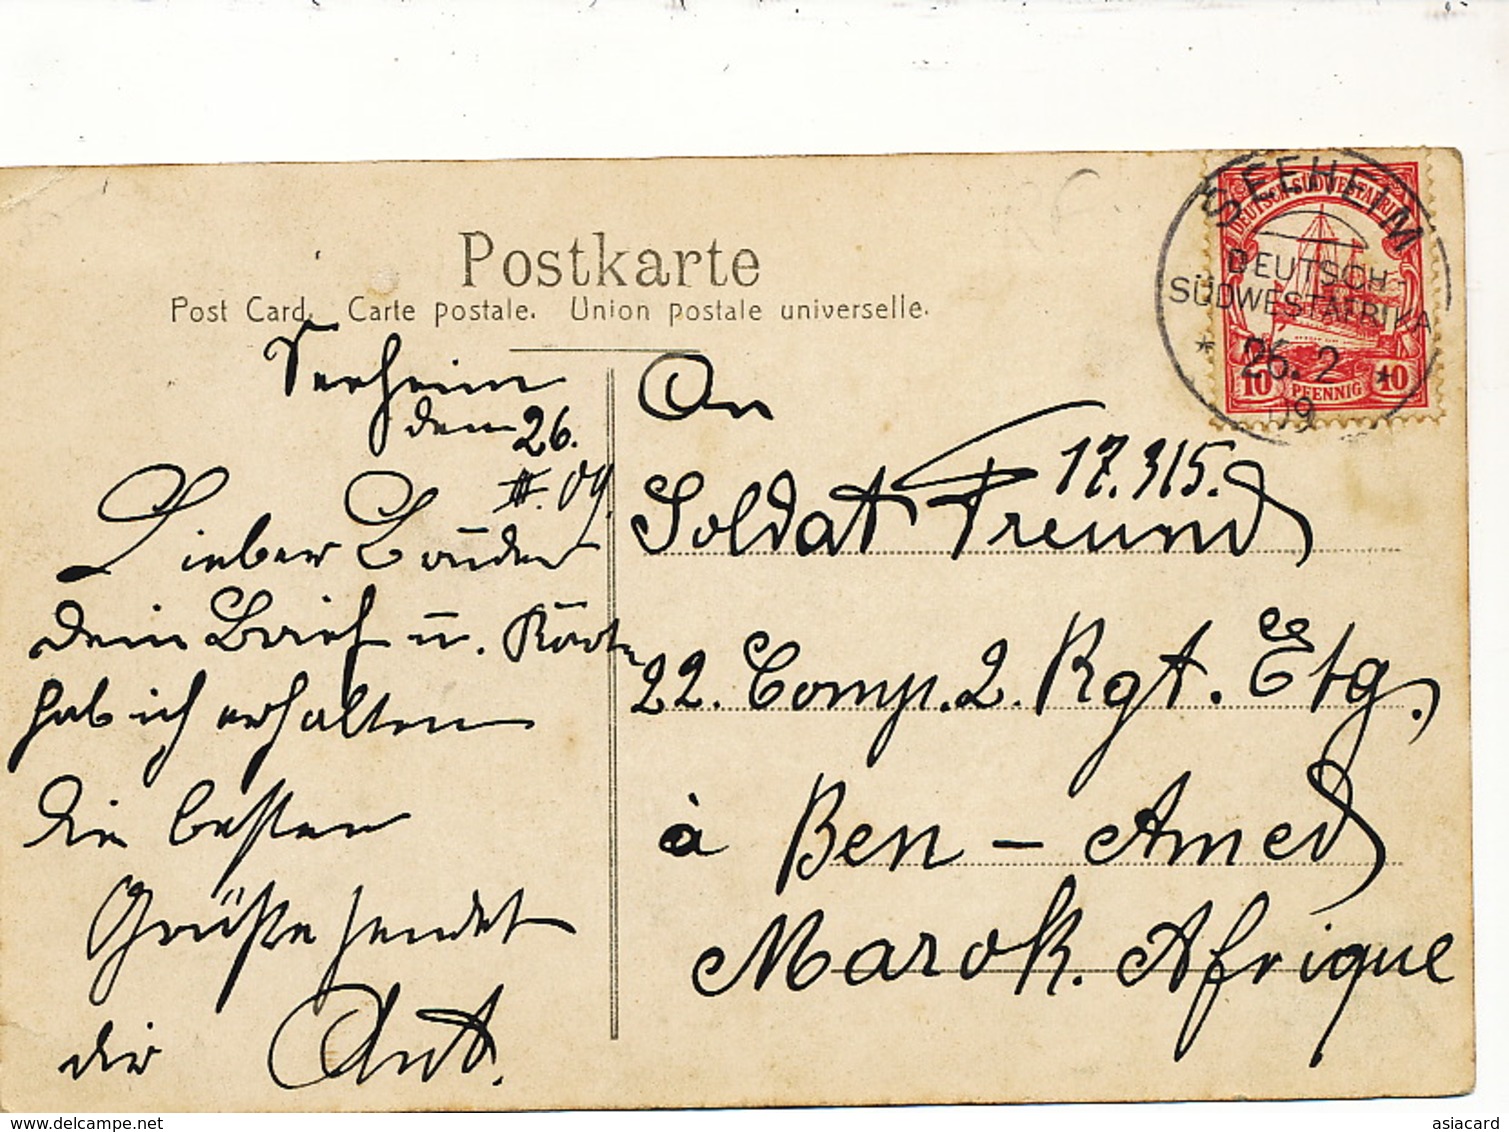 Postkarte
Post Card. Carte postale. Union postale universelle.
SEEHEIM
DEUTSCH-SÜDWESTAFRIKA
DEUTSCH-
SÜDWESTAFRIKA
* 26.2 *
09
10 PFENNIG 10
Seeheim
den 26.
II. 09.
Lieber Bruder
dein Brief u. Karte
hab ich erhalten
die besten
Grüße sendet
dir Ant.
An
17.315.
Soldat Freund
22. Comp. 2. Rgt. Etg.
à Ben - Amed
Marok. Afrique
asiacard